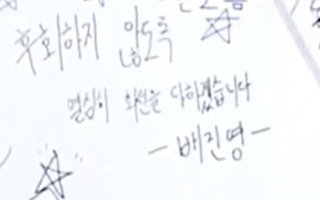 후회하지 않도록
열심히 최선을 다하겠습니다
- 배진영 -